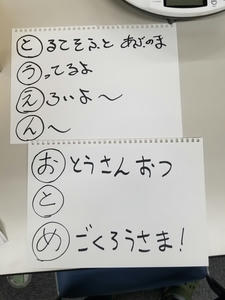 とるてそふと あぶのま
うってるよ
えふいよ～
ん～
おとうさんおつ
と
めごくろうさま！